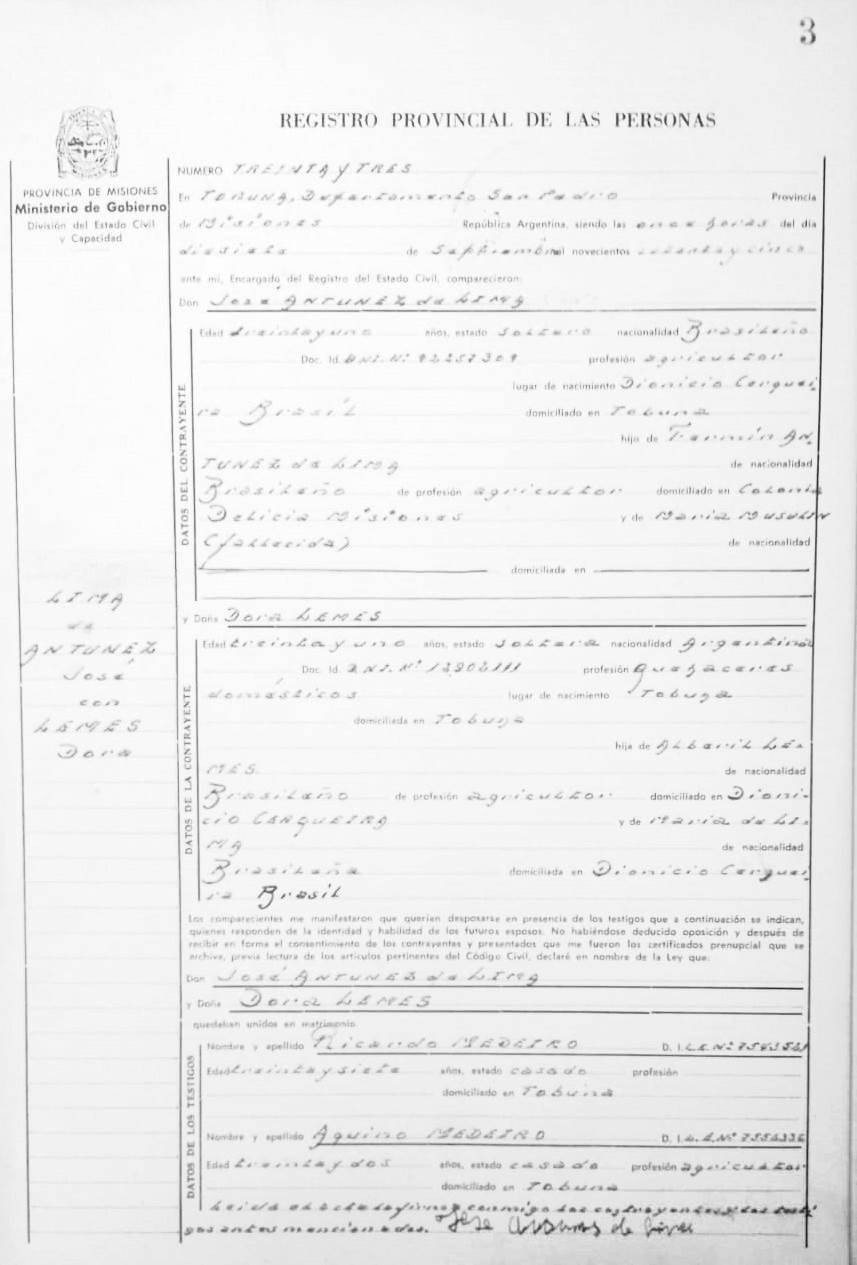 3
REGISTRO PROVINCIAL DE LAS PERSONAS
PROVINCIA DE MISIONES
Ministerio de Gobierno
División del Estado Civil
y Capacidad
NUMERO TREINTA Y TRES
En TOBUNA, Departamento San Pedro Provincia
de Misiones República Argentina, siendo las once horas del día
de Septiembre mil novecientos y cinco
ante mí, Encargado del Registro del Estado Civil, comparecieron:
Don José ANTUNEZ da LIMA
DATOS DEL CONTRAYENTE
Edad treinta y uno años, estado Soltero nacionalidad Brasileño
Doc. Id. DNI. Nº 92257309 profesión agricultor
lugar de nacimiento Dionicio Cerquei
ra Brasil domiciliado en Tobuna
hijo de Fermín AN.
TUNEZ da LIMA de nacionalidad
Brasileño de profesión agricultor domiciliado en Colonia
Delicia Misiones y de Maria MUSULIN
(fallecida) de nacionalidad
domiciliada en
y Doña Dora LEMES
DATOS DE LA CONTRAYENTE
Edad treinta y uno años, estado soltera nacionalidad Argentina
Doc. Id. DNI. Nº profesión Quehaceres
domésticos lugar de nacimiento Tobuna
domiciliada en Tobuna
hija de LE-
MES. de nacionalidad
Brasileño de profesión agricultor domiciliado en Dioni-
cio CERQUEIRA y de Maria da LI-
MA de nacionalidad
Brasileña domiciliada en Dionicio Cerquei
ra Brasil
LIMA
da
ANTUNEZ
José
con
LEMES
Dora
Los comparecientes me manifestaron que querían desposarse en presencia de los testigos que a continuación se indican,
quienes responden de la identidad y habilidad de los futuros esposos. No habiéndose deducido oposición y después de
recibir en forma el consentimiento de los contrayentes y presentados que me fueron los certificados prenupcial que se
archiva, previa lectura de los artículos pertinentes del Código Civil, declaré en nombre de la Ley que:
Don José ANTUNEZ da LIMA
y Doña Dora LEMES
quedaban unidos en matrimonio.
DATOS DE LOS TESTIGOS
Nombre y apellido Ricardo MEDEIRO D. I. L.E. Nº
Edad treinta y siete años, estado casado profesión
domiciliado en Tobuna
Nombre y apellido Aquino MEDEIRO D. I. L.E. Nº 7556336
Edad treinta y dos años, estado casado profesión agricultor
domiciliado en Tobuna
Leida el acta la firman conmigo los contrayentes y los testi
gos antes mencionados. Jose Antunes de Lima